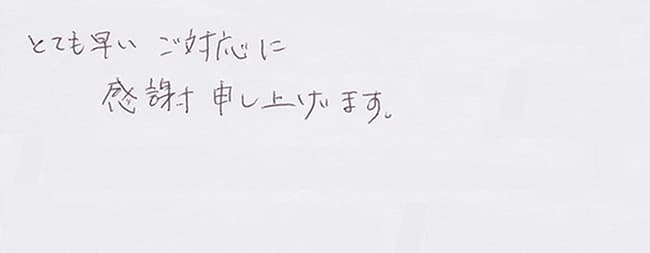 とても早い ご対応に
感謝申し上げます。